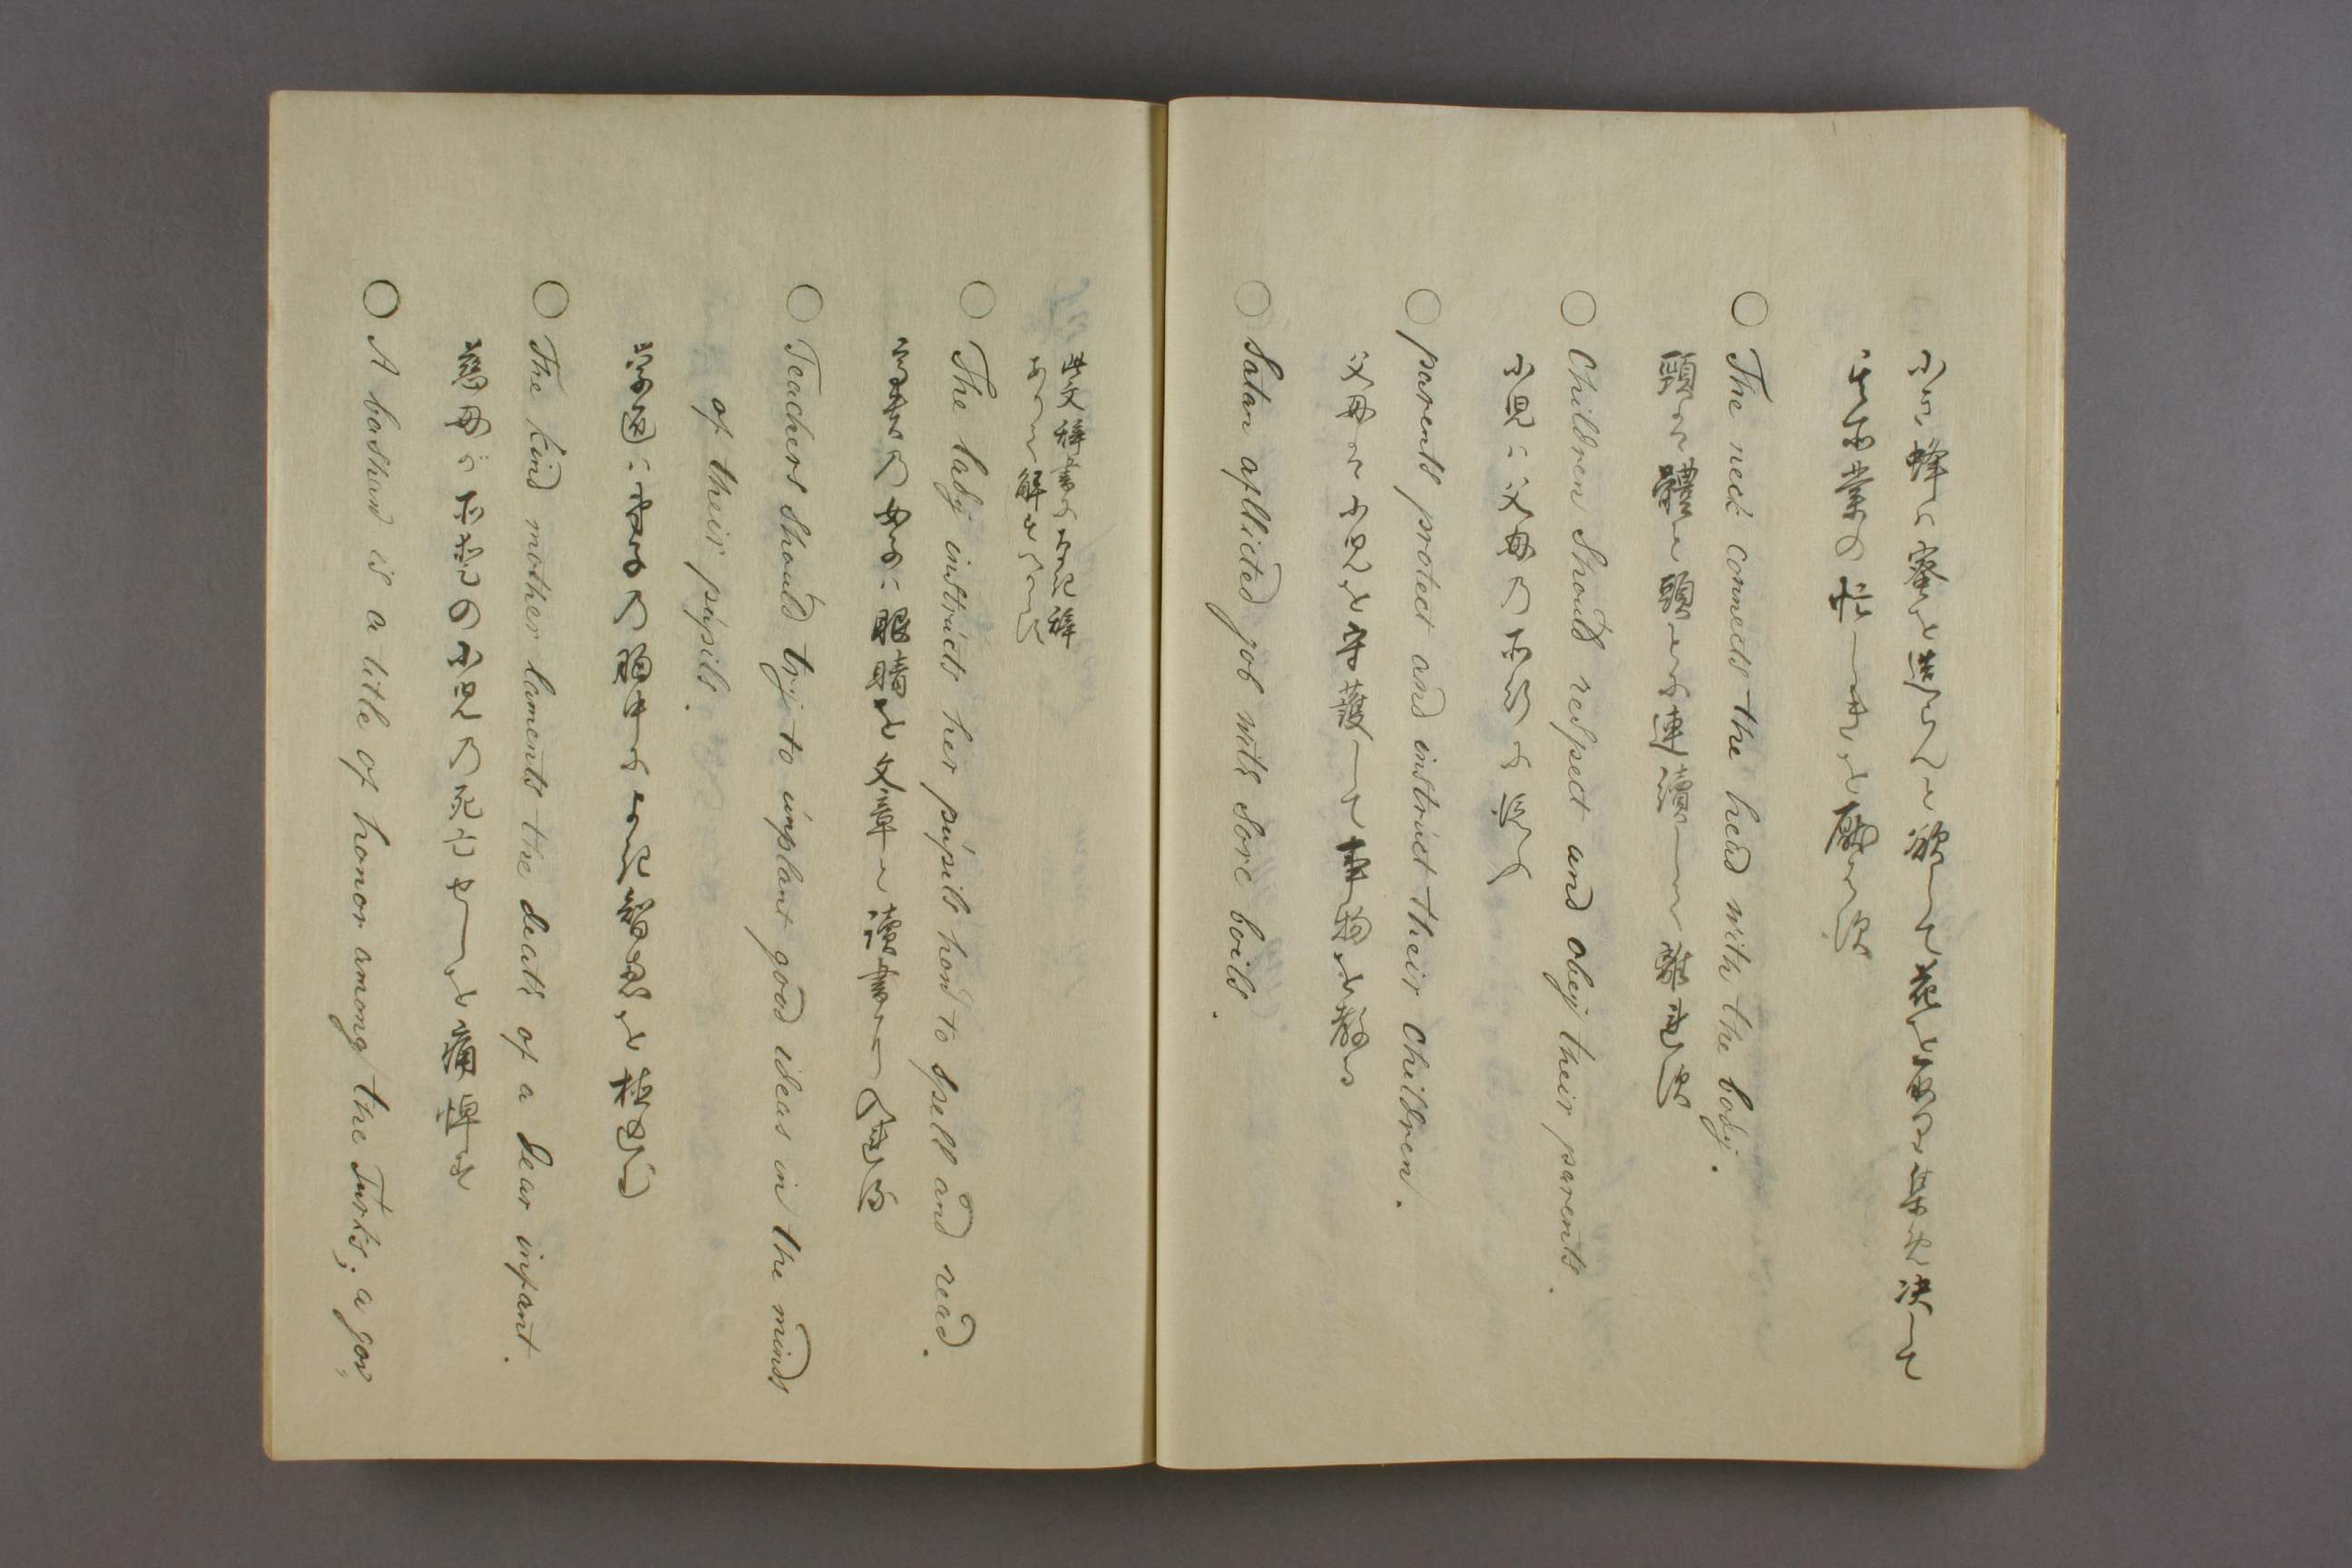 小キ蜂ハ蜜を造らんと欲して花を取り集め決して
其所業の忙しきを厭ハず
○ The neck connects the head with the body.
頸ハ體と頭とを連續して離さず
○ Children should respect and obey their parents.
小児ハ父母乃所行に従う
○ parents protect and instruct their children.
父母ハ小児を守護して事物を教ゆ
○ Satan afflicted job with sore boils.
此文稀書にて
あらハ解せられず
○ The lady instructs her pupils how to spell and read.
乃女子ハ眼睛を文章と讀書に
○ Teachers should try to implant good ideas in the minds
of their pupils.
乃胸中によき智恵を植
○ The kind mother laments the death of a dear infant.
慈母ハ所愛の小児乃死亡せしを痛悼す
○ A bashaw is a title of honor among the Turks; a gov„